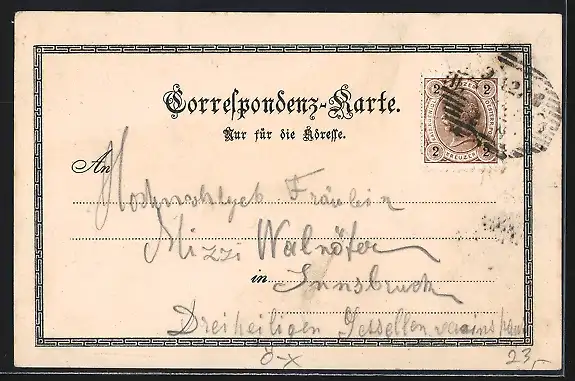 Correspondenz-Karte.
Nur für die Adresse.
2 2
2 KREUZER 2
An Hochwohlgeb Fräulein
Mizzi Walnöfer
in Innsbruck
Dreiheiligen Gesellenvereins
ö-x
23,-